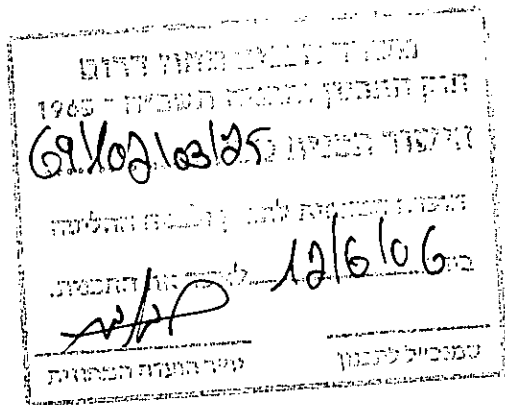 משרד הפנים מחוז דרום
חוק התכנון והבניה תשכ"ה - 1965
אישור תכנית מס' 69/102/03/25
הועדה המחוזית לתכנון ולבניה החליטה
ביום 12/6/06 לאשר את התכנית.
סמנכ"ל לתכנון
יו"ר הועדה המחוזית